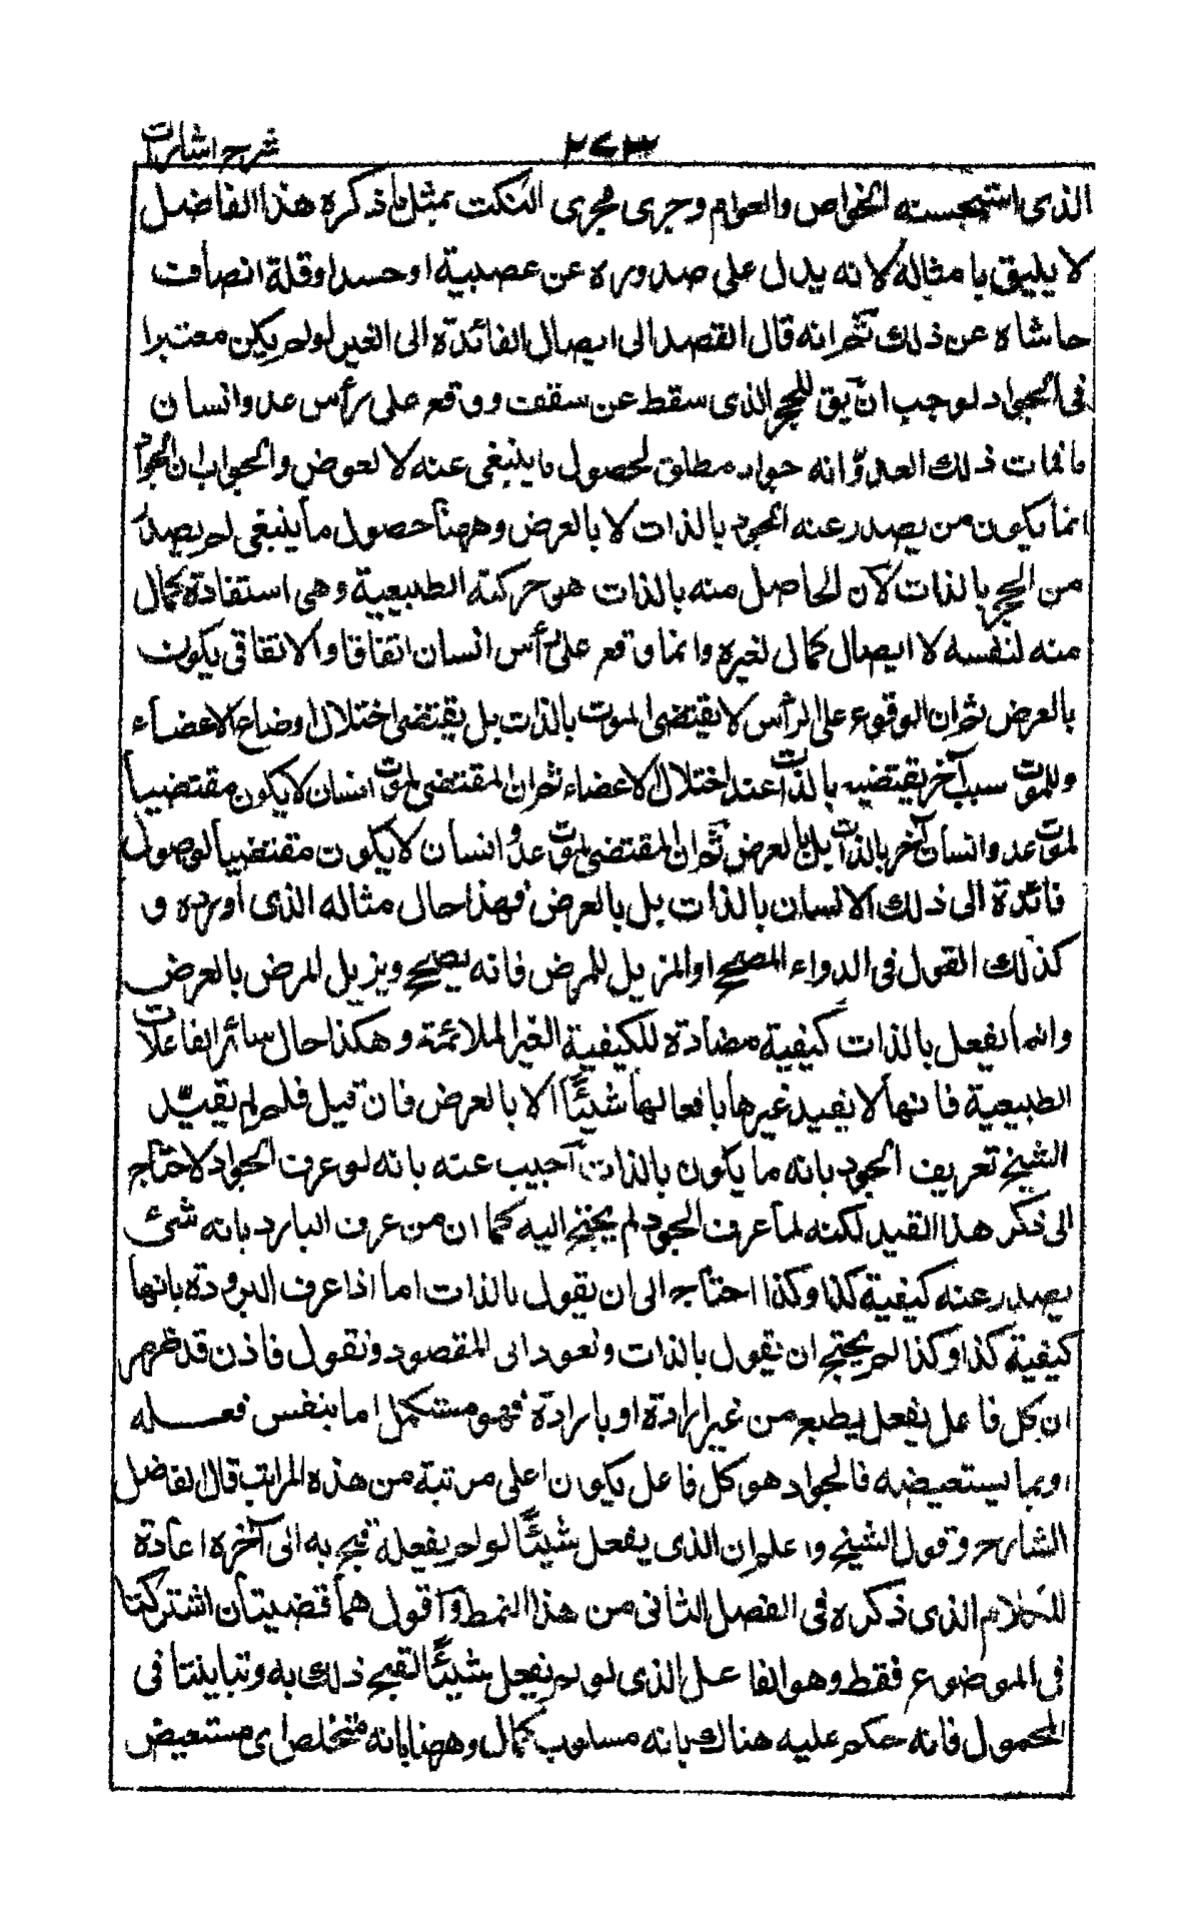 شرح اشارات
٢٧٣
الذى استحسنه الخواص والعوام وجرى مجرى النكت بمثل ما ذكره هذا الفاضل
لا يليق بامثاله لانه يدل على صدوره عن عصبية او حسد او قلة انصاف
حاشاه عن ذلك ثم انه قال القصد الى ايصال الفائدة الى الغير لو لم يكن معتبرا
فى الجواد لوجب ان يق للحجر الذى سقط عن سقف ووقع على رأس عدو انسان
ما فمات ذلك العدو انه جواد مطلق لحصول ما ينبغى عنه لا لعوض والجواب ان الجواد
انما يكون من يصدر عنه الجود بالذات لا بالعرض وههنا حصول ما ينبغى لم يصدر
من الحجر بالذات لان الحاصل منه بالذات هو حركته الطبيعية وهى استفادة كمال
منه لنفسه لا ايصال كمال لغيره وانما وقع على رأس انسان اتفاقا والاتفاقى يكون
بالعرض ثم ان الوقوع على الرأس لا يقتضى الموت بالذات بل يقتضى اختلال اوضاع الاعضاء
وللموت سبب آخر يقتضيه بالذات عند اختلال الاعضاء ثم ان المقتضى لموت انسان لا يكون مقتضيا
لموت عدو انسان آخر بالذات بل بالعرض ثم ان المقتضى لموت عدو انسان لا يكون مقتضيا لوصول
فائدة الى ذلك الانسان بالذات بل بالعرض فهذا حال مثاله الذى اورده و
كذلك القول فى الدواء المصحح او المزيل للمرض فانه يصحح ويزيل المرض بالعرض
وانما يفعل بالذات كيفية مضادة للكيفية الغير الملائمة وهكذا حال سائر الفاعلات
الطبيعية فانها لا يفيد غيرها بافعالها شيئًا الا بالعرض فان قيل فلم لم يقيّد
الشيخ تعريف الجود بانه ما يكون بالذات اجيب عنه بانه لو عرف الجواد لاحتاج
الى ذكر هذا القيد لكنه لما عرف الجود لم يحتج اليه كما ان من عرف البارد بانه شئ
يصدر عنه كيفية كذا وكذا احتاج الى ان يقول بالذات اما اذا عرف البرودة بانها
كيفية كذا وكذا لم يحتج ان يقول بالذات ونعود الى المقصود ونقول فاذن قد ظهر
ان كل فاعل يفعل بطبع من غير ارادة او بارادة فهو مستكمل اما بنفس فعله
او بما يستعيضه فالجواد هو كل فاعل يكون اعلى مرتبة من هذه المراتب قال الفاضل
الشارح وقول الشيخ واعلم ان الذى يفعل شيئًا لو لم يفعله قبح به الى آخره اعادة
للكلام الذى ذكره فى الفصل الثانى من هذا النمط واقول هما قضيتان اشتركتا
فى الموضوع فقط وهو الفاعل الذى لو لم يفعل شيئًا لقبح ذلك به وتباينتا فى
المحمول فانه حكم عليه هناك بانه مسلوب كمال وههنا بانه متخلص اى مستعيض